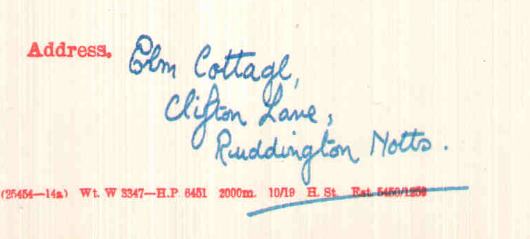 Address, Elm Cottage,
Clifton Lane,
Ruddington Notts.
(25454—14a) Wt. W 3347—H.P. 6451 2000m. 10/19 H. St. Est. 5450/1259